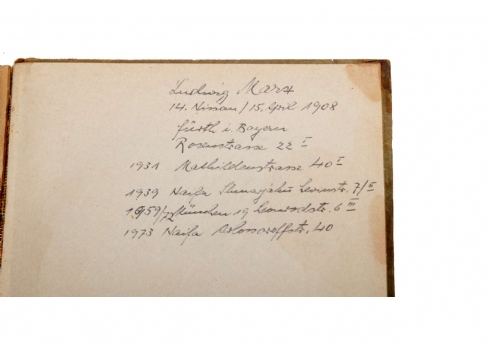 Ludwig Marx
14. Nissan / 15. April 1908
Fürth i. Bayern
Rosenstrasse 22 I
1931 Mathildenstrasse 40 I
1939 Haifa Levinstr. 7/II
1959/72 München 19 Leonrodstr. 6 III
1973 Haifa 40